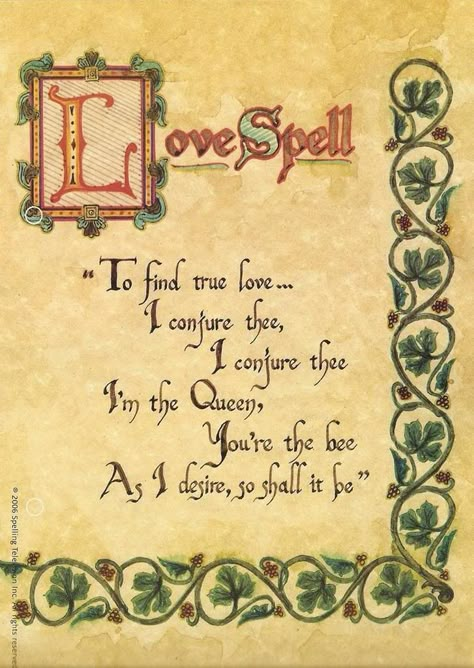 Love Spell
"To find true love...
I conjure thee,
I conjure thee
I'm the Queen,
You're the bee
As I desire, so shall it be"
© 2006 Spelling Television Inc. All rights reserved